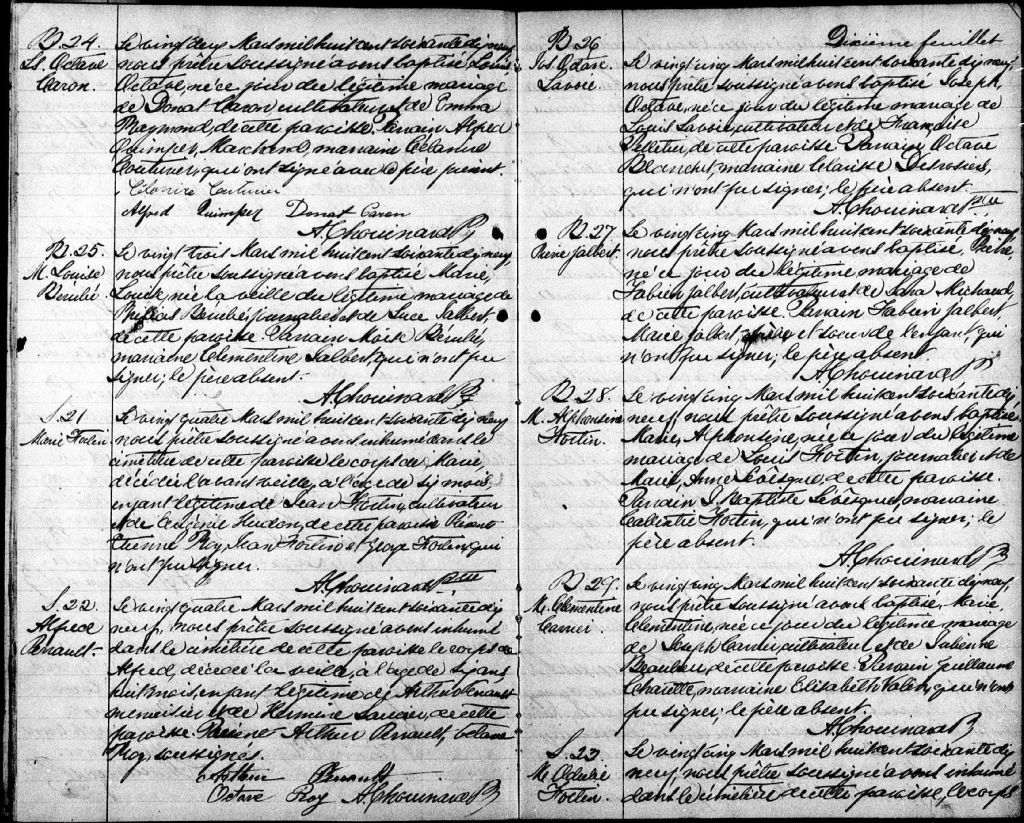 B. 24.
Ls. Octave
Caron.
Le vingt deux Mars mil huit cent soixante dix neuf
nous prêtre soussigné avons baptisé Louis
Octave, né ce jour du légitime mariage
de Donat Caron cultivateur et de Emma
Raymond, de cette paroisse. Parrain Alfred
Quimper, Marchand, marraine
Couturier, qui ont signé avec le père présent.
Couturier
Alfred Quimper Donat Caron
A. Chouinard Ptre
B. 25.
M. Louise
Berubé
Le vingt trois Mars mil huit cent soixante dix neuf
nous prêtre soussigné avons baptisé Marie,
Louise, née la veille du légitime mariage de
Berubé, journalier et de Luce Jalbert,
de cette paroisse. Parrain Berubé,
marraine Clementine Jalbert, qui n'ont pu
signer; le père absent.
A. Chouinard Ptre
S. 21
Marie Fortin
Le vingt quatre Mars mil huit cent soixante dix neuf
nous prêtre soussigné avons inhumé dans le
cimétière de cette paroisse le corps de Marie,
décédée l'avant veille, à l'age de six mois,
enfant légitime de Jean Fortin, cultivateur
et de Hudon, de cette paroisse. Présents
Etienne Roy, Jean Fortin et George Fortin, qui
n'ont pu signer.
A. Chouinard Ptre
S. 22.
Alfred
Perrault
Le vingt quatre Mars mil huit cent soixante dix
neuf, nous prêtre soussigné avons inhumé
dans le cimétière de cette paroisse le corps de
Alfred, décédé la veille, à l'age de six ans
huit mois, enfant légitime de Arthur Perrault
menuisier et de Hermine Saucier, de cette
paroisse. Présents Arthur Perrault, Octave
Roy, soussignés.
Arthur Perrault
Octave Roy A. Chouinard Ptre
Dixième feuillet
B. 26
Jos Octave
Lavoie.
Le vingt cinq Mars mil huit cent soixante dix neuf,
nous prêtre soussigné avons baptisé Joseph,
Octave, né ce jour du légitime mariage de
Louis Lavoie, cultivateur et de Françoise
Pelletier, de cette paroisse. Parrain Octave
Blanchet, marraine Clarisse Desrosiers,
qui n'ont pu signer; le père absent.
A. Chouinard Ptre
B. 27
Pierre Jalbert.
Le vingt cinq Mars mil huit cent soixante dix neuf
nous prêtre soussigné avons baptisé Pierre,
né ce jour du légitime mariage de
Fabien Jalbert, cultivateur et de Sara Michaud,
de cette paroisse. Parrain Fabien Jalbert,
Marie Jalbert, frère et soeur de l'enfant, qui
n'ont pu signer; le père absent.
A. Chouinard Ptre
B. 28.
M. Alphonsine
Fortin.
Le vingt cinq Mars mil huit cent soixante dix
neuf, nous prêtre soussigné avons baptisé
Marie, Alphonsine, née ce jour du légitime
mariage de Louis Fortin, journalier et de
Marie, Anne Lévesque, de cette paroisse.
Parrain J. Baptiste Lévesque, marraine
Fortin, qui n'ont pu signer; le
père absent.
A. Chouinard Ptre
B. 29.
M. Clementine
Carrier.
Le vingt cinq Mars mil huit cent soixante dix neuf,
nous prêtre soussigné avons baptisé, Marie,
Clementine, née ce jour du légitime mariage
de Joseph Carrier, cultivateur et de Julienne
Beaulieu, de cette paroisse. Parrain Guillaume
Charette, marraine Elisabeth Valin, qui n'ont
pu signer; le père absent.
A. Chouinard Ptre
S. 23
M.
Fortin.
Le vingt cinq Mars mil huit cent soixante dix
neuf, nous prêtre soussigné avons inhumé
dans le cimétière de cette paroisse, le corps